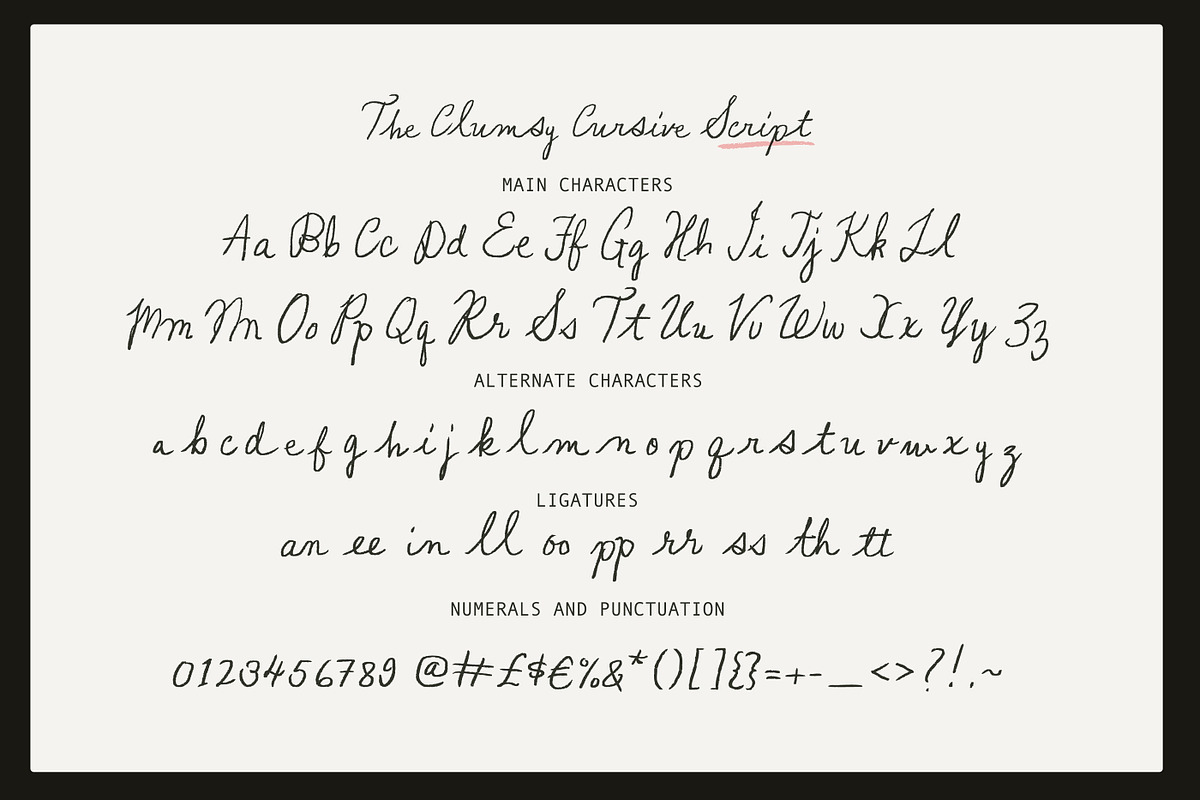 The Clumsy Cursive Script
MAIN CHARACTERS
Aa Bb Cc Dd Ee Ff Gg Hh Ii Jj Kk Ll
Mm Nn Oo Pp Qq Rr Ss Tt Uu Vv Ww Xx Yy Zz
ALTERNATE CHARACTERS
a b c d e f g h i j k l m n o p q r s t u v w x y z
LIGATURES
an ee in ll oo pp rr ss th tt
NUMERALS AND PUNCTUATION
0123456789 @#£$€%&*()[]{}=+-_<>?!.,~